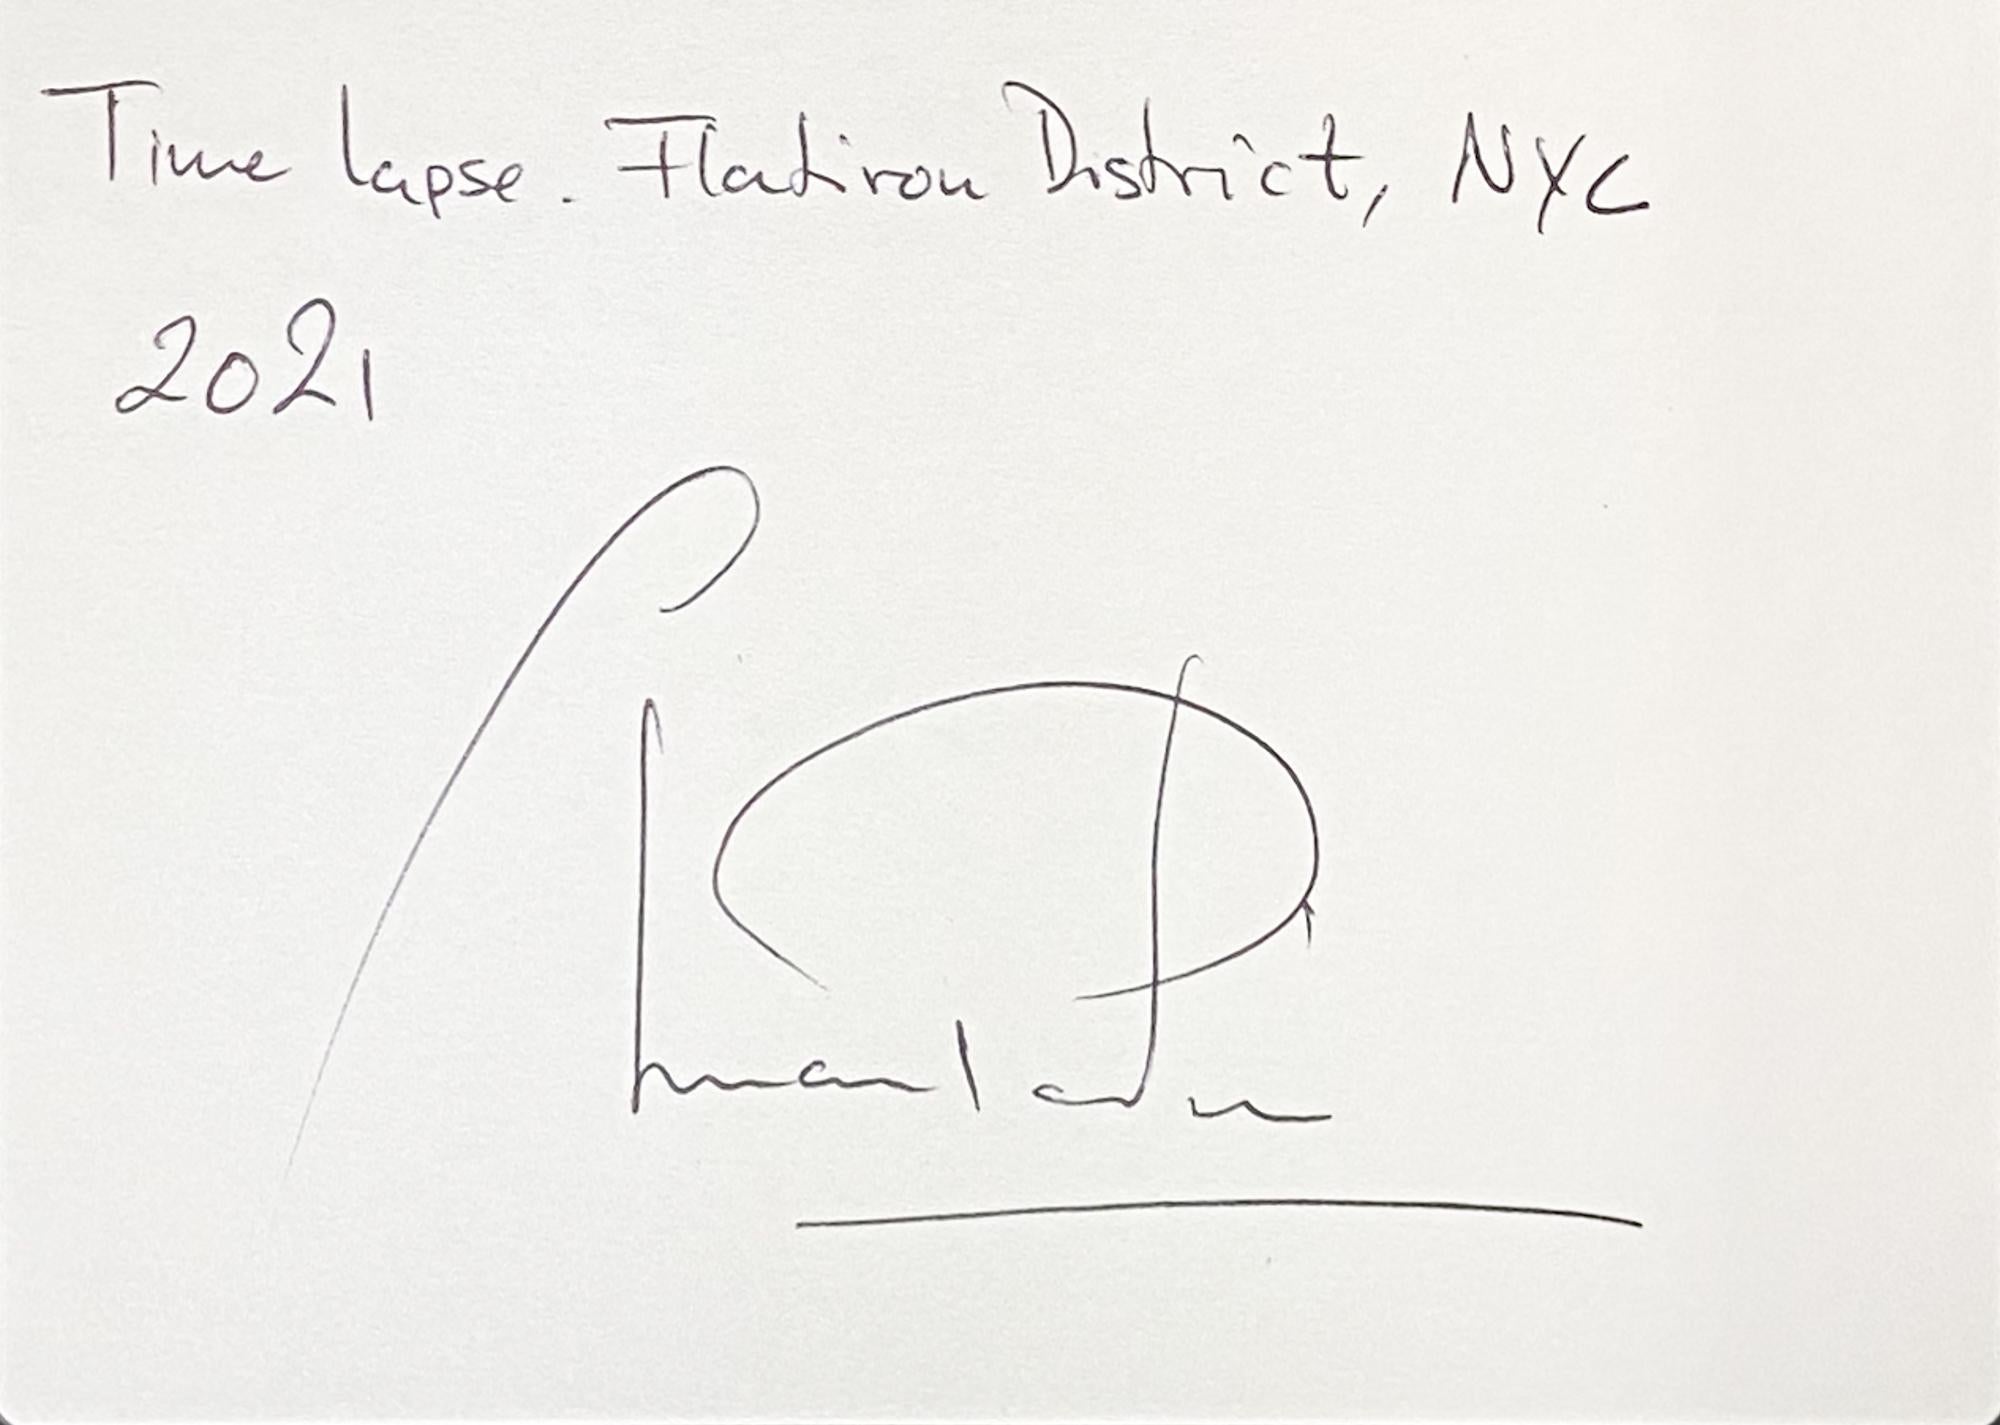 Time lapse. Flatiron District, NYC
2021